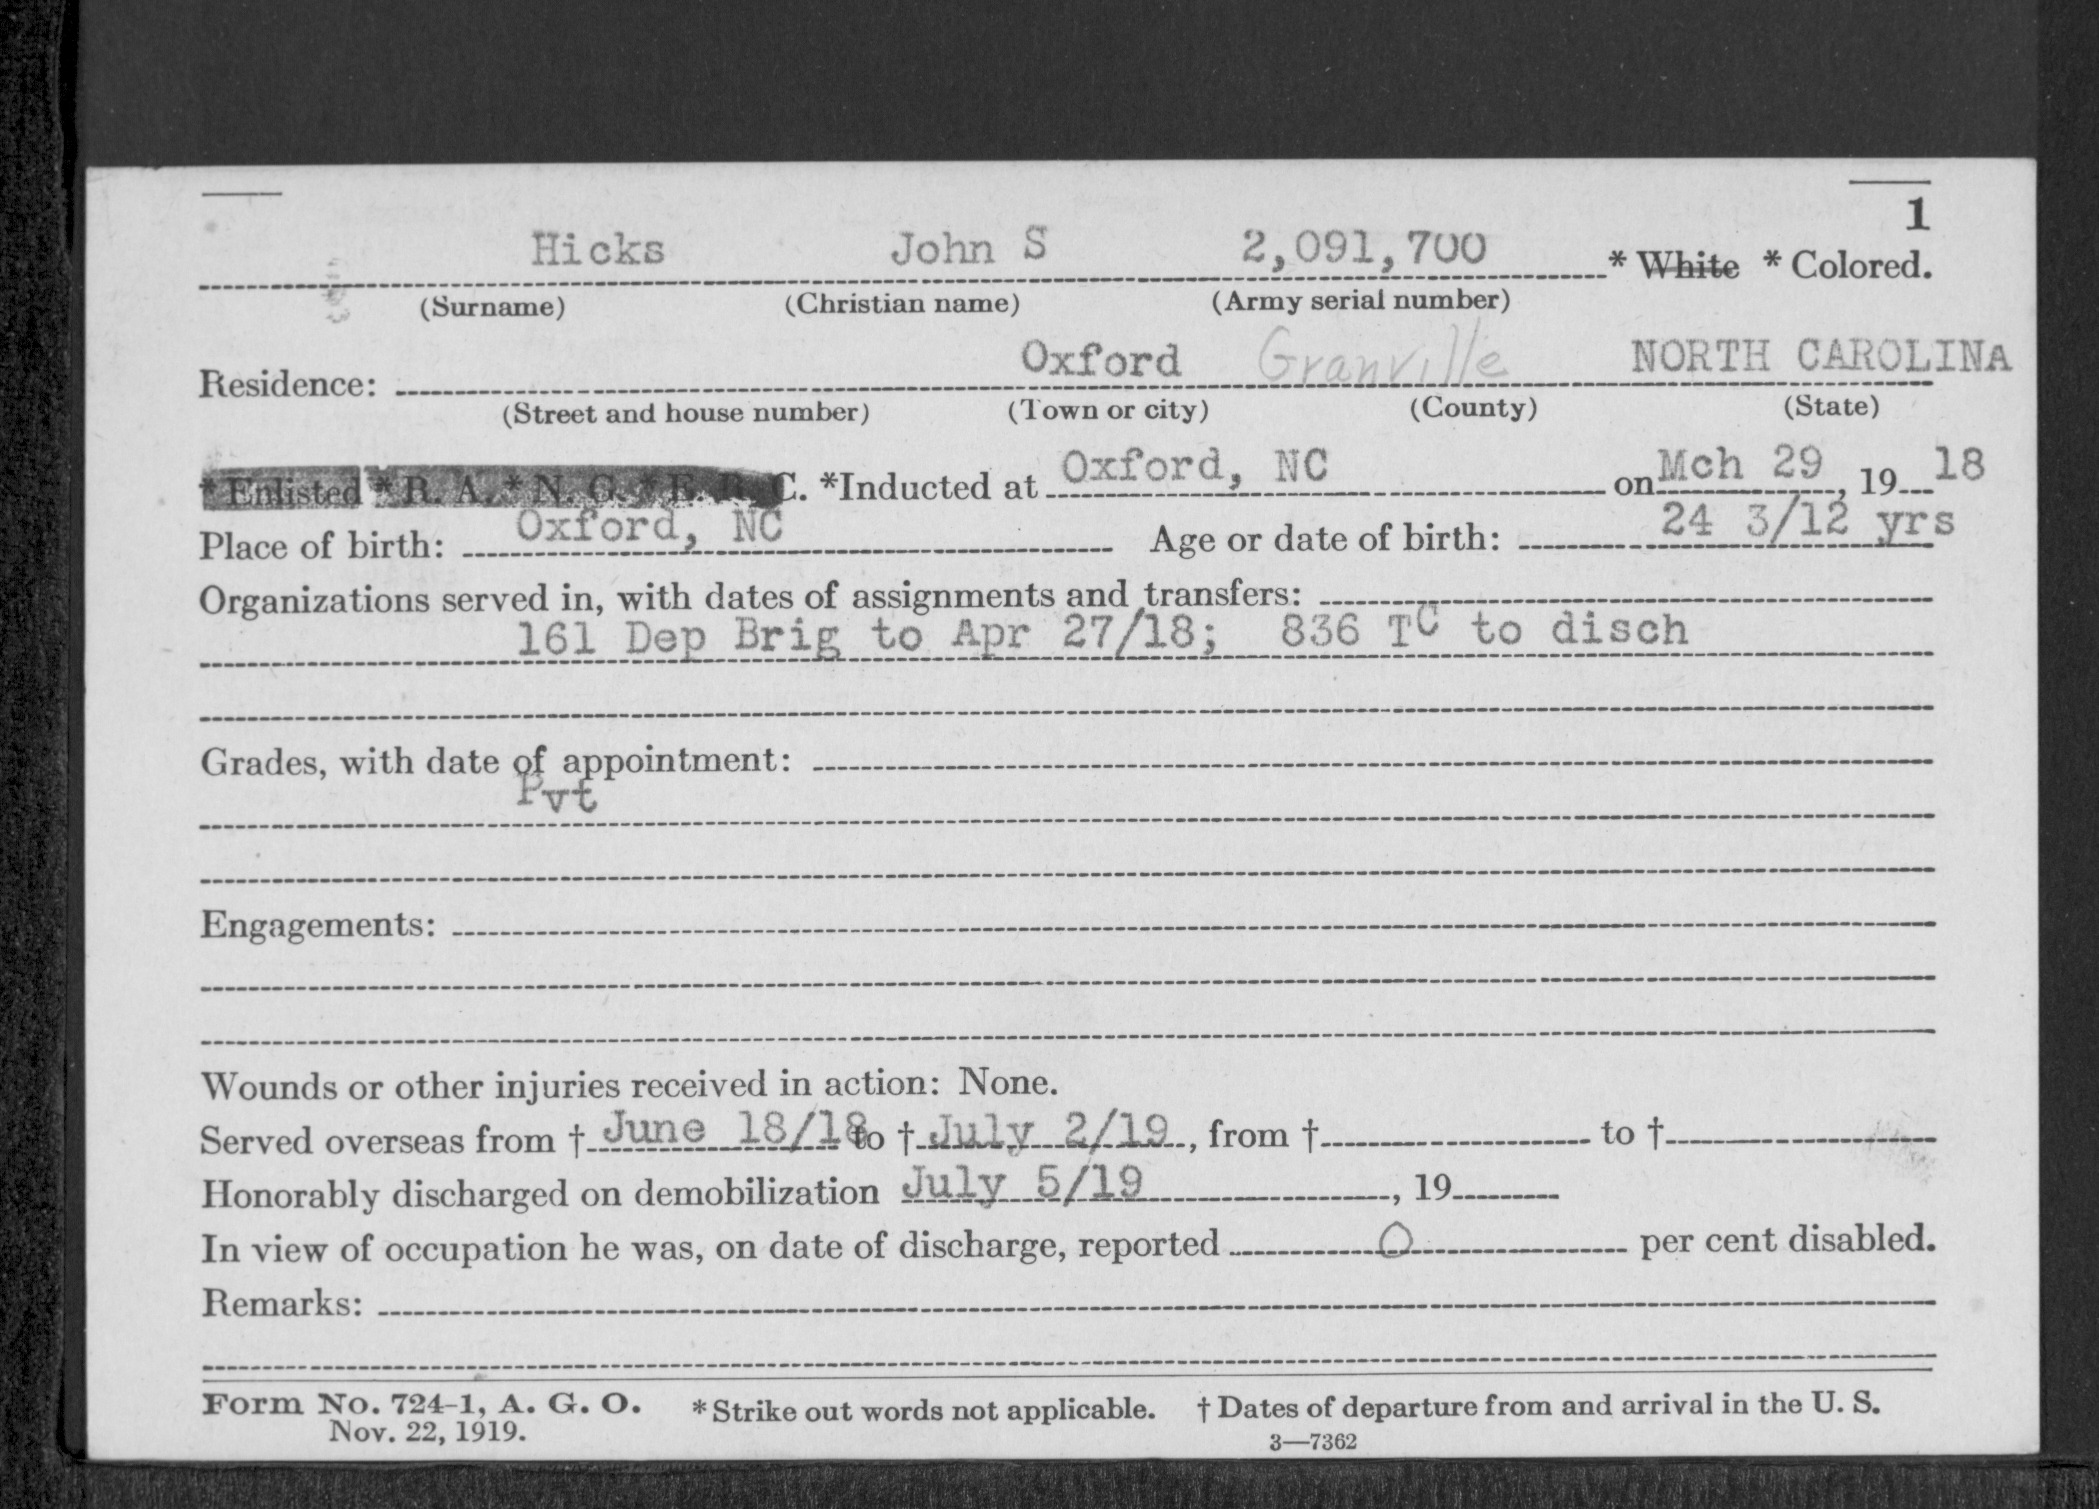 1
Hicks John S 2,091,700 * White * Colored.
(Surname) (Christian name) (Army serial number)
Residence: Oxford Granville NORTH CAROLINA
(Street and house number) (Town or city) (County) (State)
* Enlisted * R. A. * N. G. * E. R. C. *Inducted at Oxford, NC on Mch 29, 19 18
Place of birth: Oxford, NC Age or date of birth: 24 3/12 yrs
Organizations served in, with dates of assignments and transfers:
161 Dep Brig to Apr 27/18; 836 TC to disch
Grades, with date of appointment:
Pvt
Engagements:
Wounds or other injuries received in action: None.
Served overseas from † June 18/18 to † July 2/19, from † to †
Honorably discharged on demobilization July 5/19, 19
In view of occupation he was, on date of discharge, reported 0 per cent disabled.
Remarks:
Form No. 724-1, A. G. O. * Strike out words not applicable. † Dates of departure from and arrival in the U. S.
Nov. 22, 1919. 3—7362